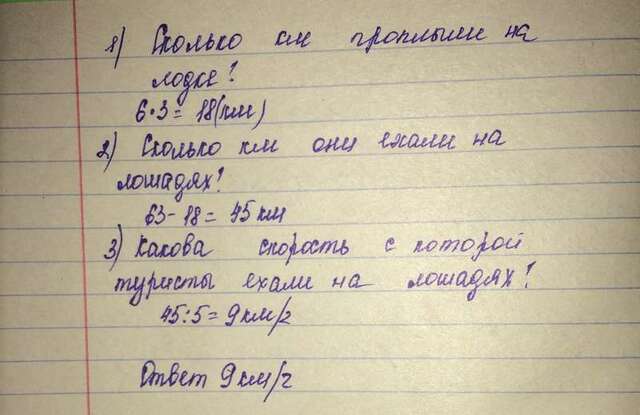 1) Сколько км проплыли на
лодке?
6·3 = 18(км)
2) Сколько км они ехали на
лошадях?
63-18 = 45 км
3) Какова скорость с которой
туристы ехали на лошадях?
45:5 = 9 км/г
Ответ 9 км/г